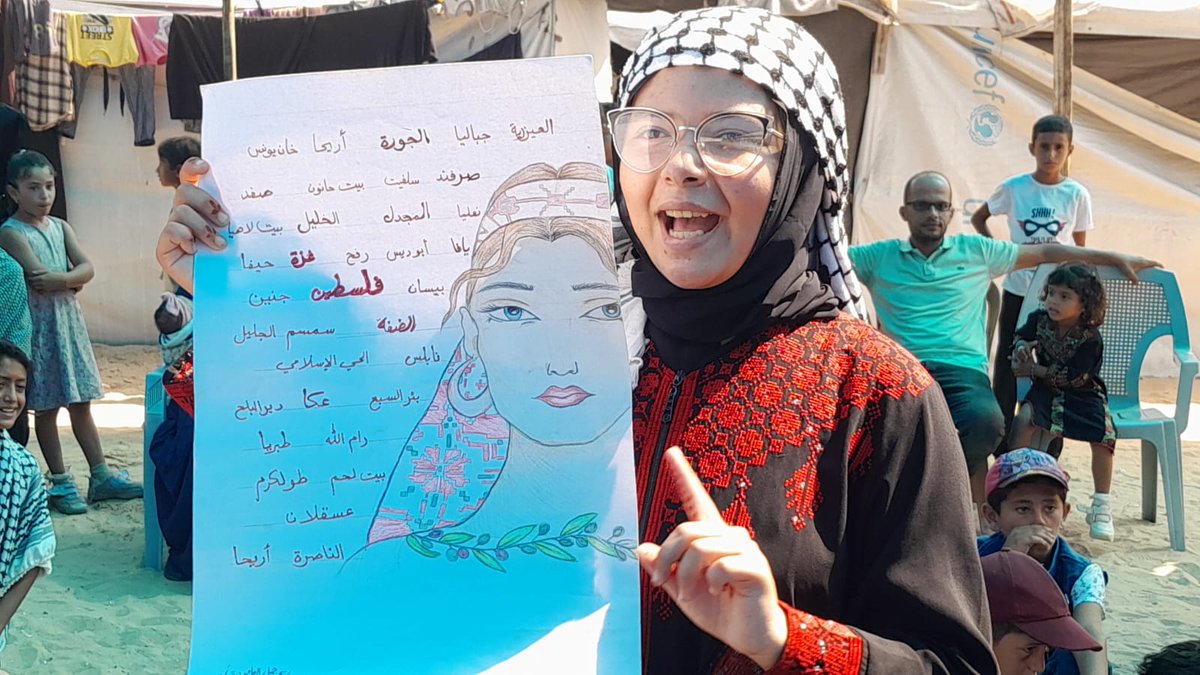 العيزرية جباليا الجورة أريحا خان يونس
صرفند سلفيت بيت حانون صفد
نعليا المجدل الخليل بيت لاهيا
يافا أبوديس رفح غزة حيفا
بيسان فلسطين جنين
الضفة سمسم الجليل
نابلس الحي الإسلامي
بئر السبع عكا دير البلح
رام الله طبريا
بيت لحم طولكرم
عسقلان
الناصرة أريحا
unicef
SHHH!
STREET